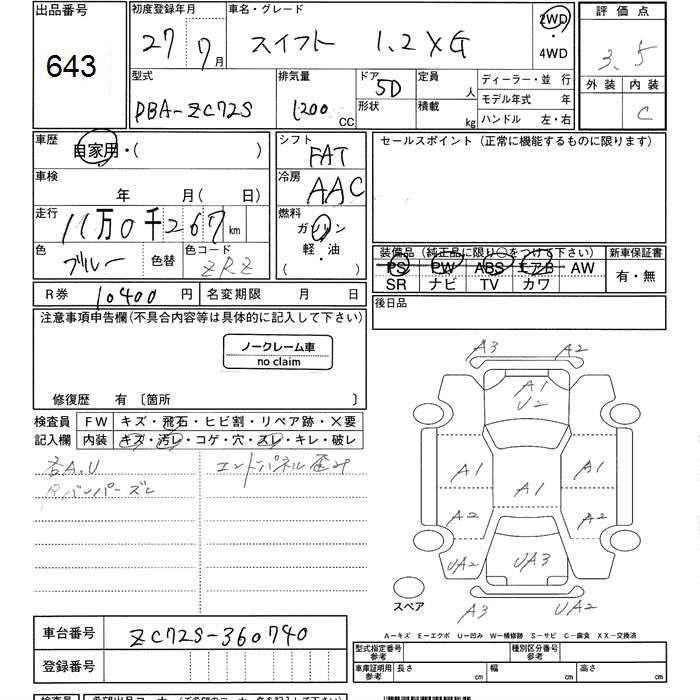 出品番号
643
初度登録年月
27年7月
車名・グレード
スイフト 1.2XG
2WD
4WD
評価点
3.5
外装 内装
C
型式
DBA-ZC72S
排気量
1200 CC
ドア 5D
形状
定員 人
積載 kg
ディーラー・並行
モデル年式 年
ハンドル 左・右
車歴
自家用・( )
車検
年 月(日)
走行
11万0千267km
色 ブルー
色替
色コード ZRZ
シフト
FAT
冷房
AAC
燃料
ガソリン
軽・油
( )
セールスポイント (正常に機能するものに限ります)
装備品 (純正品に限り○をつけて下さい)
PS PW ABS エアB AW
SR ナビ TV カワ
新車保証書
有・無
R券 10400円
名変期限 月 日
後日品
注意事項申告欄(不具合内容等は具体的に記入して下さい)
ノークレーム車
no claim
修復歴 有 〔箇所 〕
検査員 FW キズ・飛石・ヒビ割・リペア跡・×要
記入欄 内装 キズ・汚レ・コゲ・穴・スレ・キレ・破レ
各A.U
Rバンパーズレ
エンドパネル歪み
A3 A2
A1
U2
A1 A1 A1
A2 A2
UA2 UA3 A2
A3 UA2
スペア
A-キズ E-エクボ U-凹み W-補修跡 S-サビ C-腐食 XX-交換済
車台番号 ZC72S-360740
登録番号
型式指定番号 参考
種別区分番号 参考
車庫証明用 参考 長さ cm 幅 cm 高さ cm
643